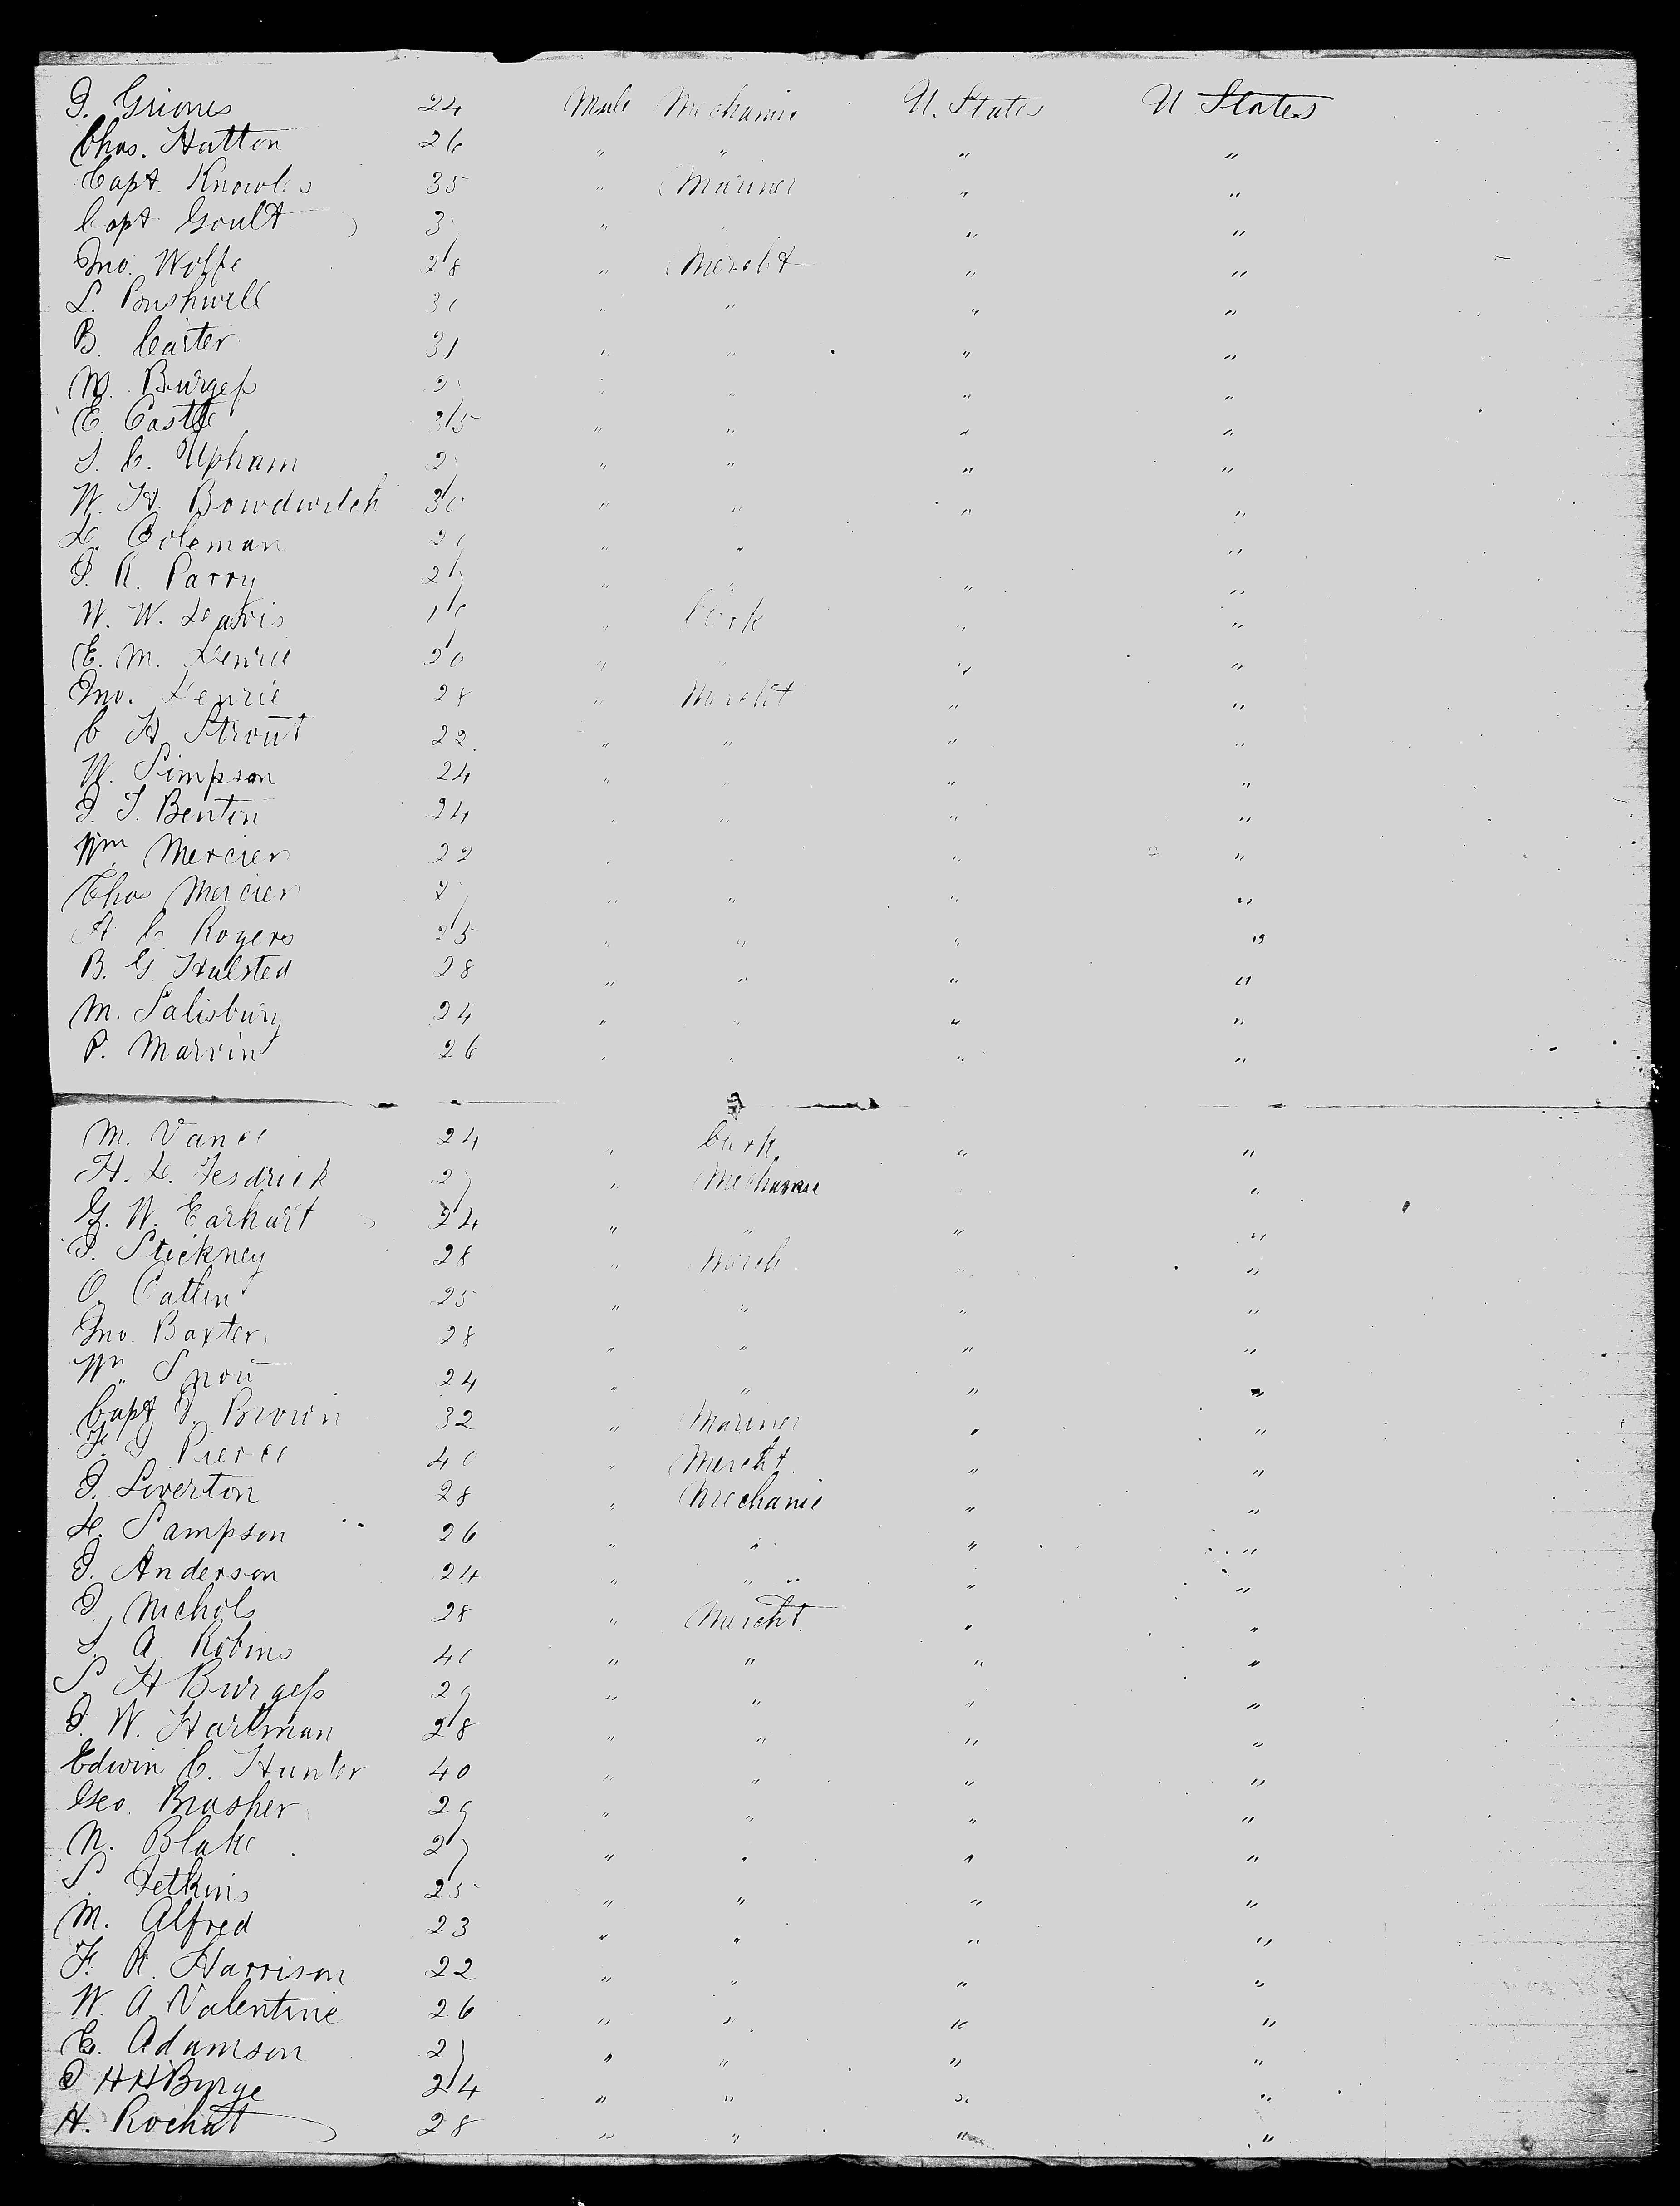 J. Grimes 24 Male Mechanic U. States U States
Chas. Hutton 26 " " " "
Capt. Knowles 35 " Mariner " "
Capt Goult 37 " " "
Jno. Wolfe 28 " Mercht " "
L. Bushwell 30 " " " "
B. Carter 31 " " " "
W. Burgess " " " "
E. Castle 35 " " " "
S. C. Upham 27 " " " "
W. H. Bowdwitch 30 " " " "
L. Coleman 29 " " "
J. R. Parry 27 " " " "
W. W. Davis " Clerk " "
E. M. Henrie 20 " " " "
Jno. Henrie 28 " Mercht " "
C H Strout 22 " " " "
W. Simpson 24 " " "
J. T. Benton 24 " " " "
Wm Mercier 22 " " " "
Thos Mercier 27 " " " "
A C. Rogers 25 " " " "
B. G Halsted 28 " " " "
M. Salisbury 24 " " " "
P. Marvin 26 " " " "
M. Vance 24 " Clerk " "
H. L. Fesdrick 27 " Mechanic "
G. W. Earhart 24 " " " "
J. Stickney 28 " Merch "
O. Catlin 25 " " " "
Jno. Baxter 28 " " " "
Wm 24 " " " "
Capt J. Brown 32 " Mariner " "
Pierce 40 " Mercht. " "
J. Loverton 28 " Mechanic " "
L. Sampson 26 " " " "
J. Anderson 24 " " " "
J. Nichols 28 " Mercht. " "
S. A Robins 40 " " " "
S. H Burgess 29 " " " "
J. W. Hartman 28 " " " "
Edwin C. Hunter 40 " " " "
Geo. Brasher 29 " " " "
N. Blake 27 " " " "
S Jetkins 25 " " " "
M. Alfred 23 " " " "
F. R. Harrison 22 " " " "
W. A Valentine 26 " " " "
E. Adamson 27 " " " "
J H H Burge 24 " " " "
H. Rochat 28 " " " "